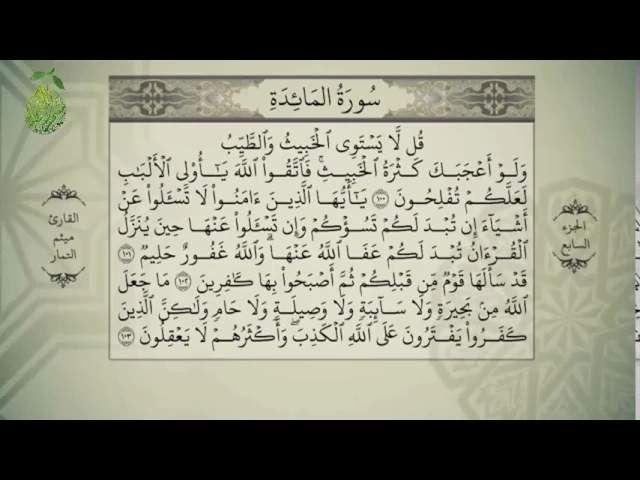 سُورَةُ المَائِدَةِ
قُل لَّا يَسْتَوِى ٱلْخَبِيثُ وَٱلطَّيِّبُ
وَلَوْ أَعْجَبَكَ كَثْرَةُ ٱلْخَبِيثِۚ فَٱتَّقُوا۟ ٱللَّهَ يَـٰٓأُو۟لِى ٱلْأَلْبَـٰبِ
لَعَلَّكُمْ تُفْلِحُونَ ١٠٠ يَـٰٓأَيُّهَا ٱلَّذِينَ ءَامَنُوا۟ لَا تَسْـَٔلُوا۟ عَنْ
أَشْيَآءَ إِن تُبْدَ لَكُمْ تَسُؤْكُمْ وَإِن تَسْـَٔلُوا۟ عَنْهَا حِينَ يُنَزَّلُ
ٱلْقُرْءَانُ تُبْدَ لَكُمْ عَفَا ٱللَّهُ عَنْهَاۗ وَٱللَّهُ غَفُورٌ حَلِيمٌ ١٠١
قَدْ سَأَلَهَا قَوْمٌ مِّن قَبْلِكُمْ ثُمَّ أَصْبَحُوا۟ بِهَا كَـٰفِرِينَ ١٠٢ مَا جَعَلَ
ٱللَّهُ مِنۢ بَحِيرَةٍ وَلَا سَآئِبَةٍ وَلَا وَصِيلَةٍ وَلَا حَامٍ وَلَـٰكِنَّ ٱلَّذِينَ
كَفَرُوا۟ يَفْتَرُونَ عَلَى ٱللَّهِ ٱلْكَذِبَۖ وَأَكْثَرُهُمْ لَا يَعْقِلُونَ ١٠٣
الجزء
السابع
القارئ
ميثم
التمار